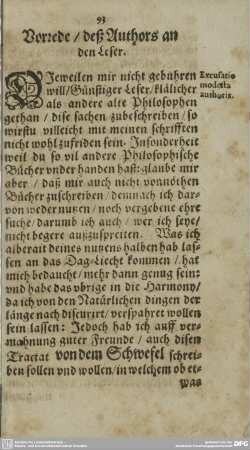 93
Vorrede / deß Authors an
den Leser.
DJeweilen mir nicht gebühren
will / Günstiger Leser / klälicher
als andere alte Philosophen
gethan / dise sachen zubeschreiben / so
wirstu villeicht mit meinen schrifften
nicht wohl zufriden sein. Insonderheit
weil du so vil andere Philosophische
Bücher vnder handen hast: glaube mir
aber / daß mir auch nicht vonnöthen
Bücher zuschreiben / demnach ich dar-
von weder nutzen / noch vergebene ehre
suche / darumb ich auch / wer ich seye /
nicht begere außzuspreiten. Was ich
aber alt deines nutzens halben hab las-
sen an das Dag-Liecht kommen / hat
mich bedaucht / mehr dann genug sein:
vnd habe das vbrige in die Harmony /
da ich von den Natürlichen dingen der
länge nach discurirt / versparet wollen
sein lassen: Jedoch hab ich auff ver-
mahnung guter Freunde / auch disen
Tractat von dem Schwefel schrei-
ben sollen vnd wollen / in welchem ob et-
was
Excusatio
modesta
authoris.